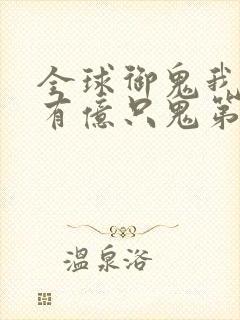 全球御鬼我
有億只鬼第
溫泉浴